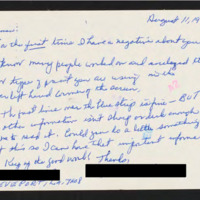 August 11, 19
For the first time I have a negative about your
know many people worked on and analyzed the
type of print you are using in the
left hand corning the screen.
The first line over the blue strip is fine - BUT
other information isn't sharp or dark enough
to read it. Could you do a little something
this so I can have that important informa
Keep up the good work! Thanks,